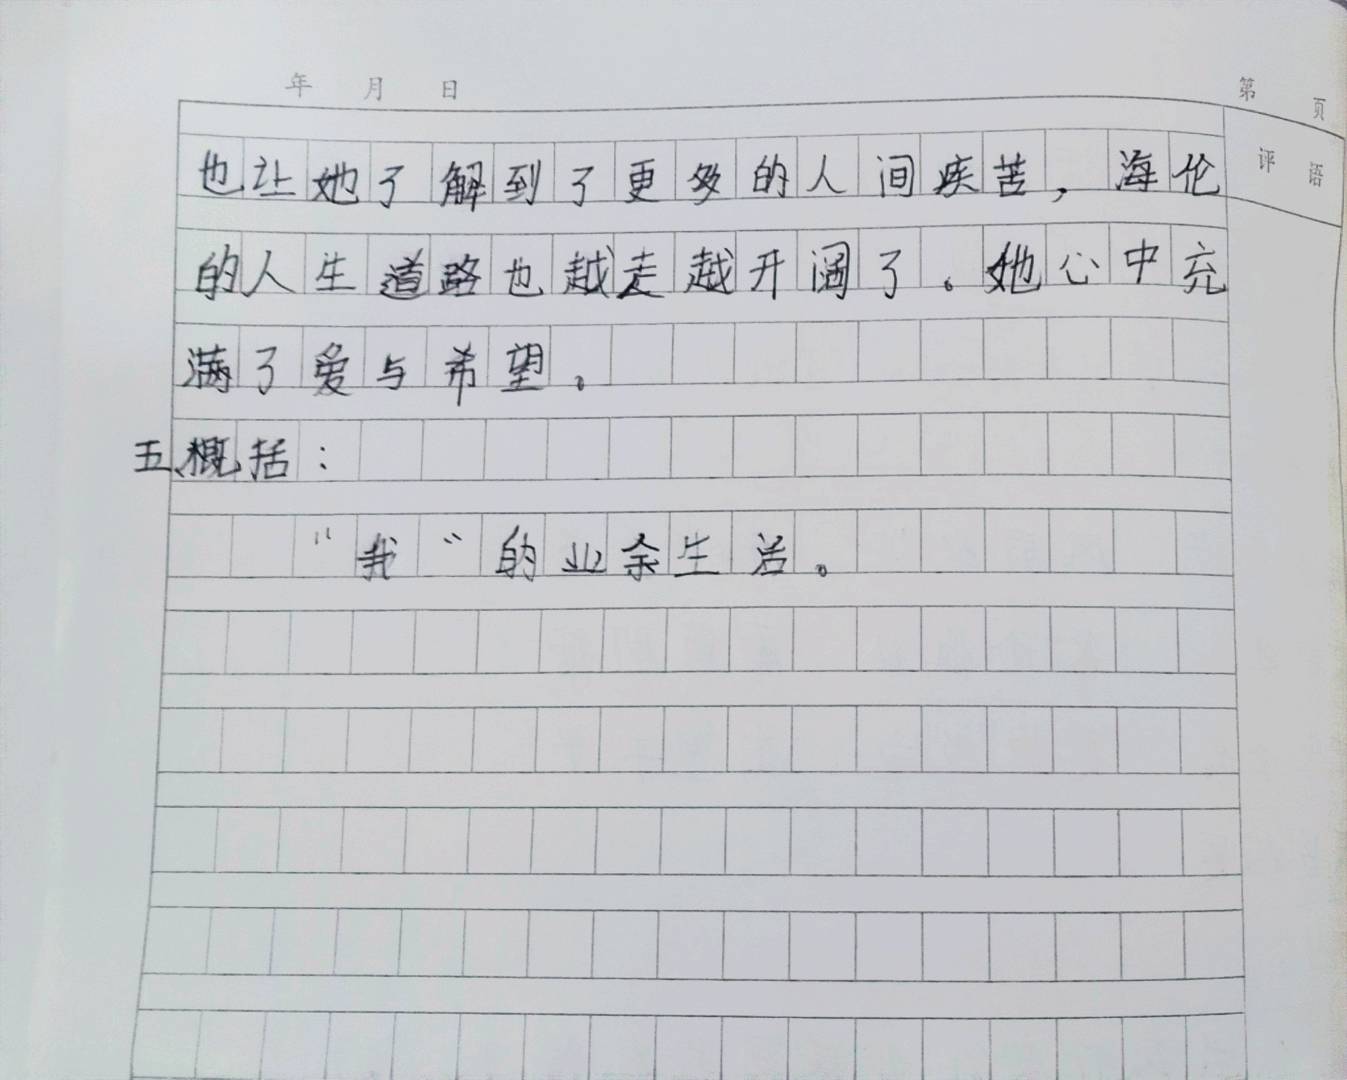 年 月 日
第 页
评语
也让她了解到了更多的人间疾苦，海伦
的人生道路也越走越开阔了。她心中充
满了爱与希望。
五、概括：
“我”的业余生活。